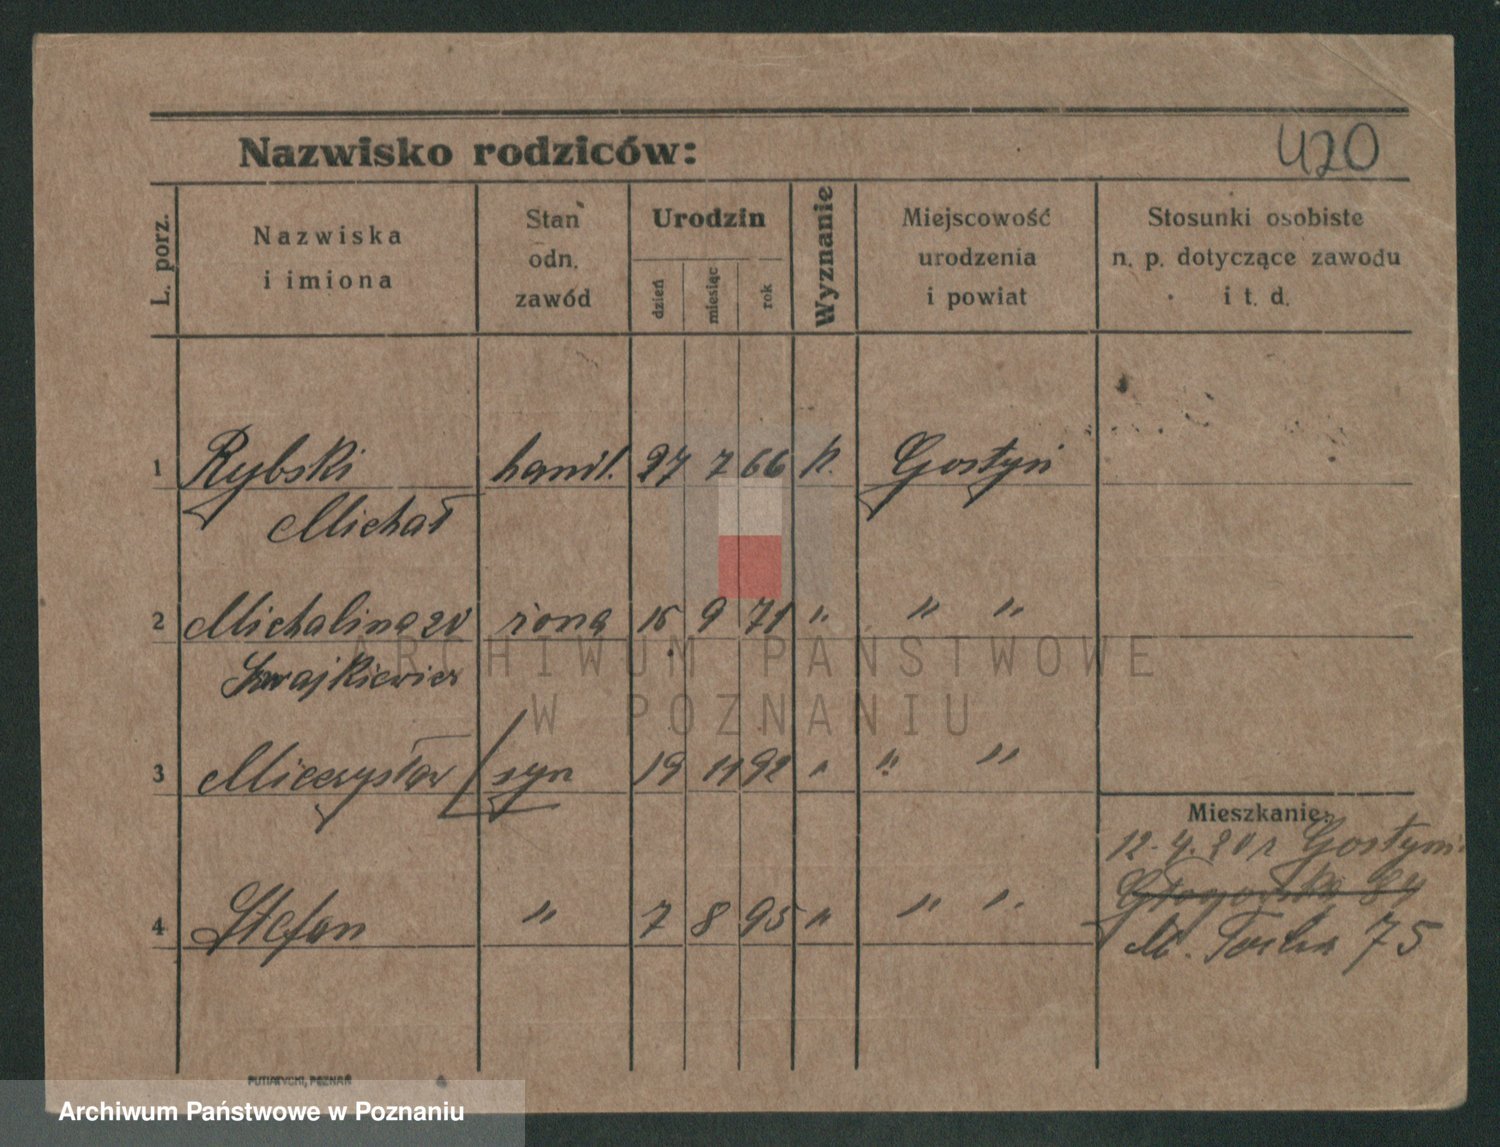 420
Nazwisko rodziców:
L. porz.
Nazwiska
i imiona
Stan
odn.
zawód
Urodzin
dzień
miesiąc
rok
Wyznanie
Miejscowość
urodzenia
i powiat
Stosunki osobiste
n. p. dotyczące zawodu
i t. d.
1 Rybski handl. 27 7 66 k. Gostyń
Michał
2 Michalina zd żona 15 9 71 " " "
ARCHIWUM PAŃSTWOWE
W POZNANIU
3 Mieczysław syn 19 11 92 " " "
Mieszkanie:
12.4.20 r Gostyń
Głogowska 84
4 Stefan " 7 8 95 " " "
M. Focha 75
PUTIATYCKI, POZNAŃ
Archiwum Państwowe w Poznaniu